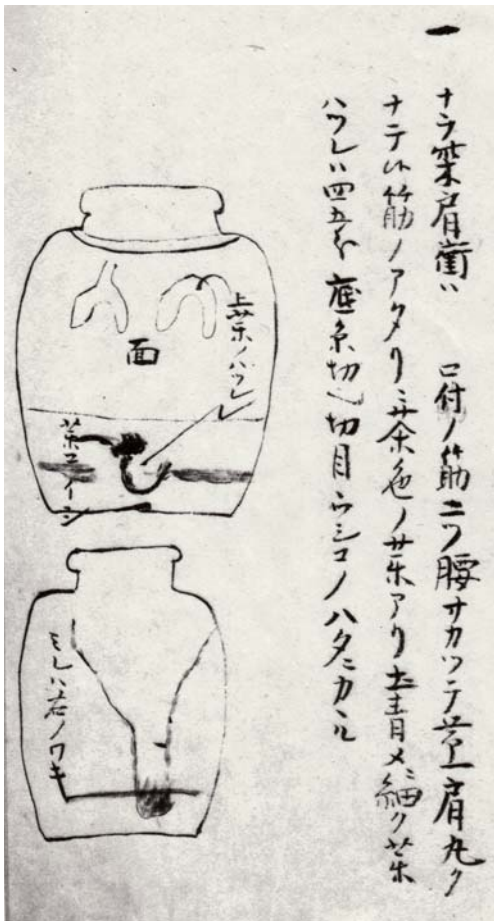 一
ナラ柴肩衝ハ 口付ノ筋二ツ腰サカツテ一肩丸ク
ナテ候筋ノアタリニ茶色ノ薬アリ土青メニ細ク薬
ハツレハ四五分 底糸切也切目ウシロノハタニカヽル
面
上薬ノハツレ
薬コイシ
ミレハ右ノワキ